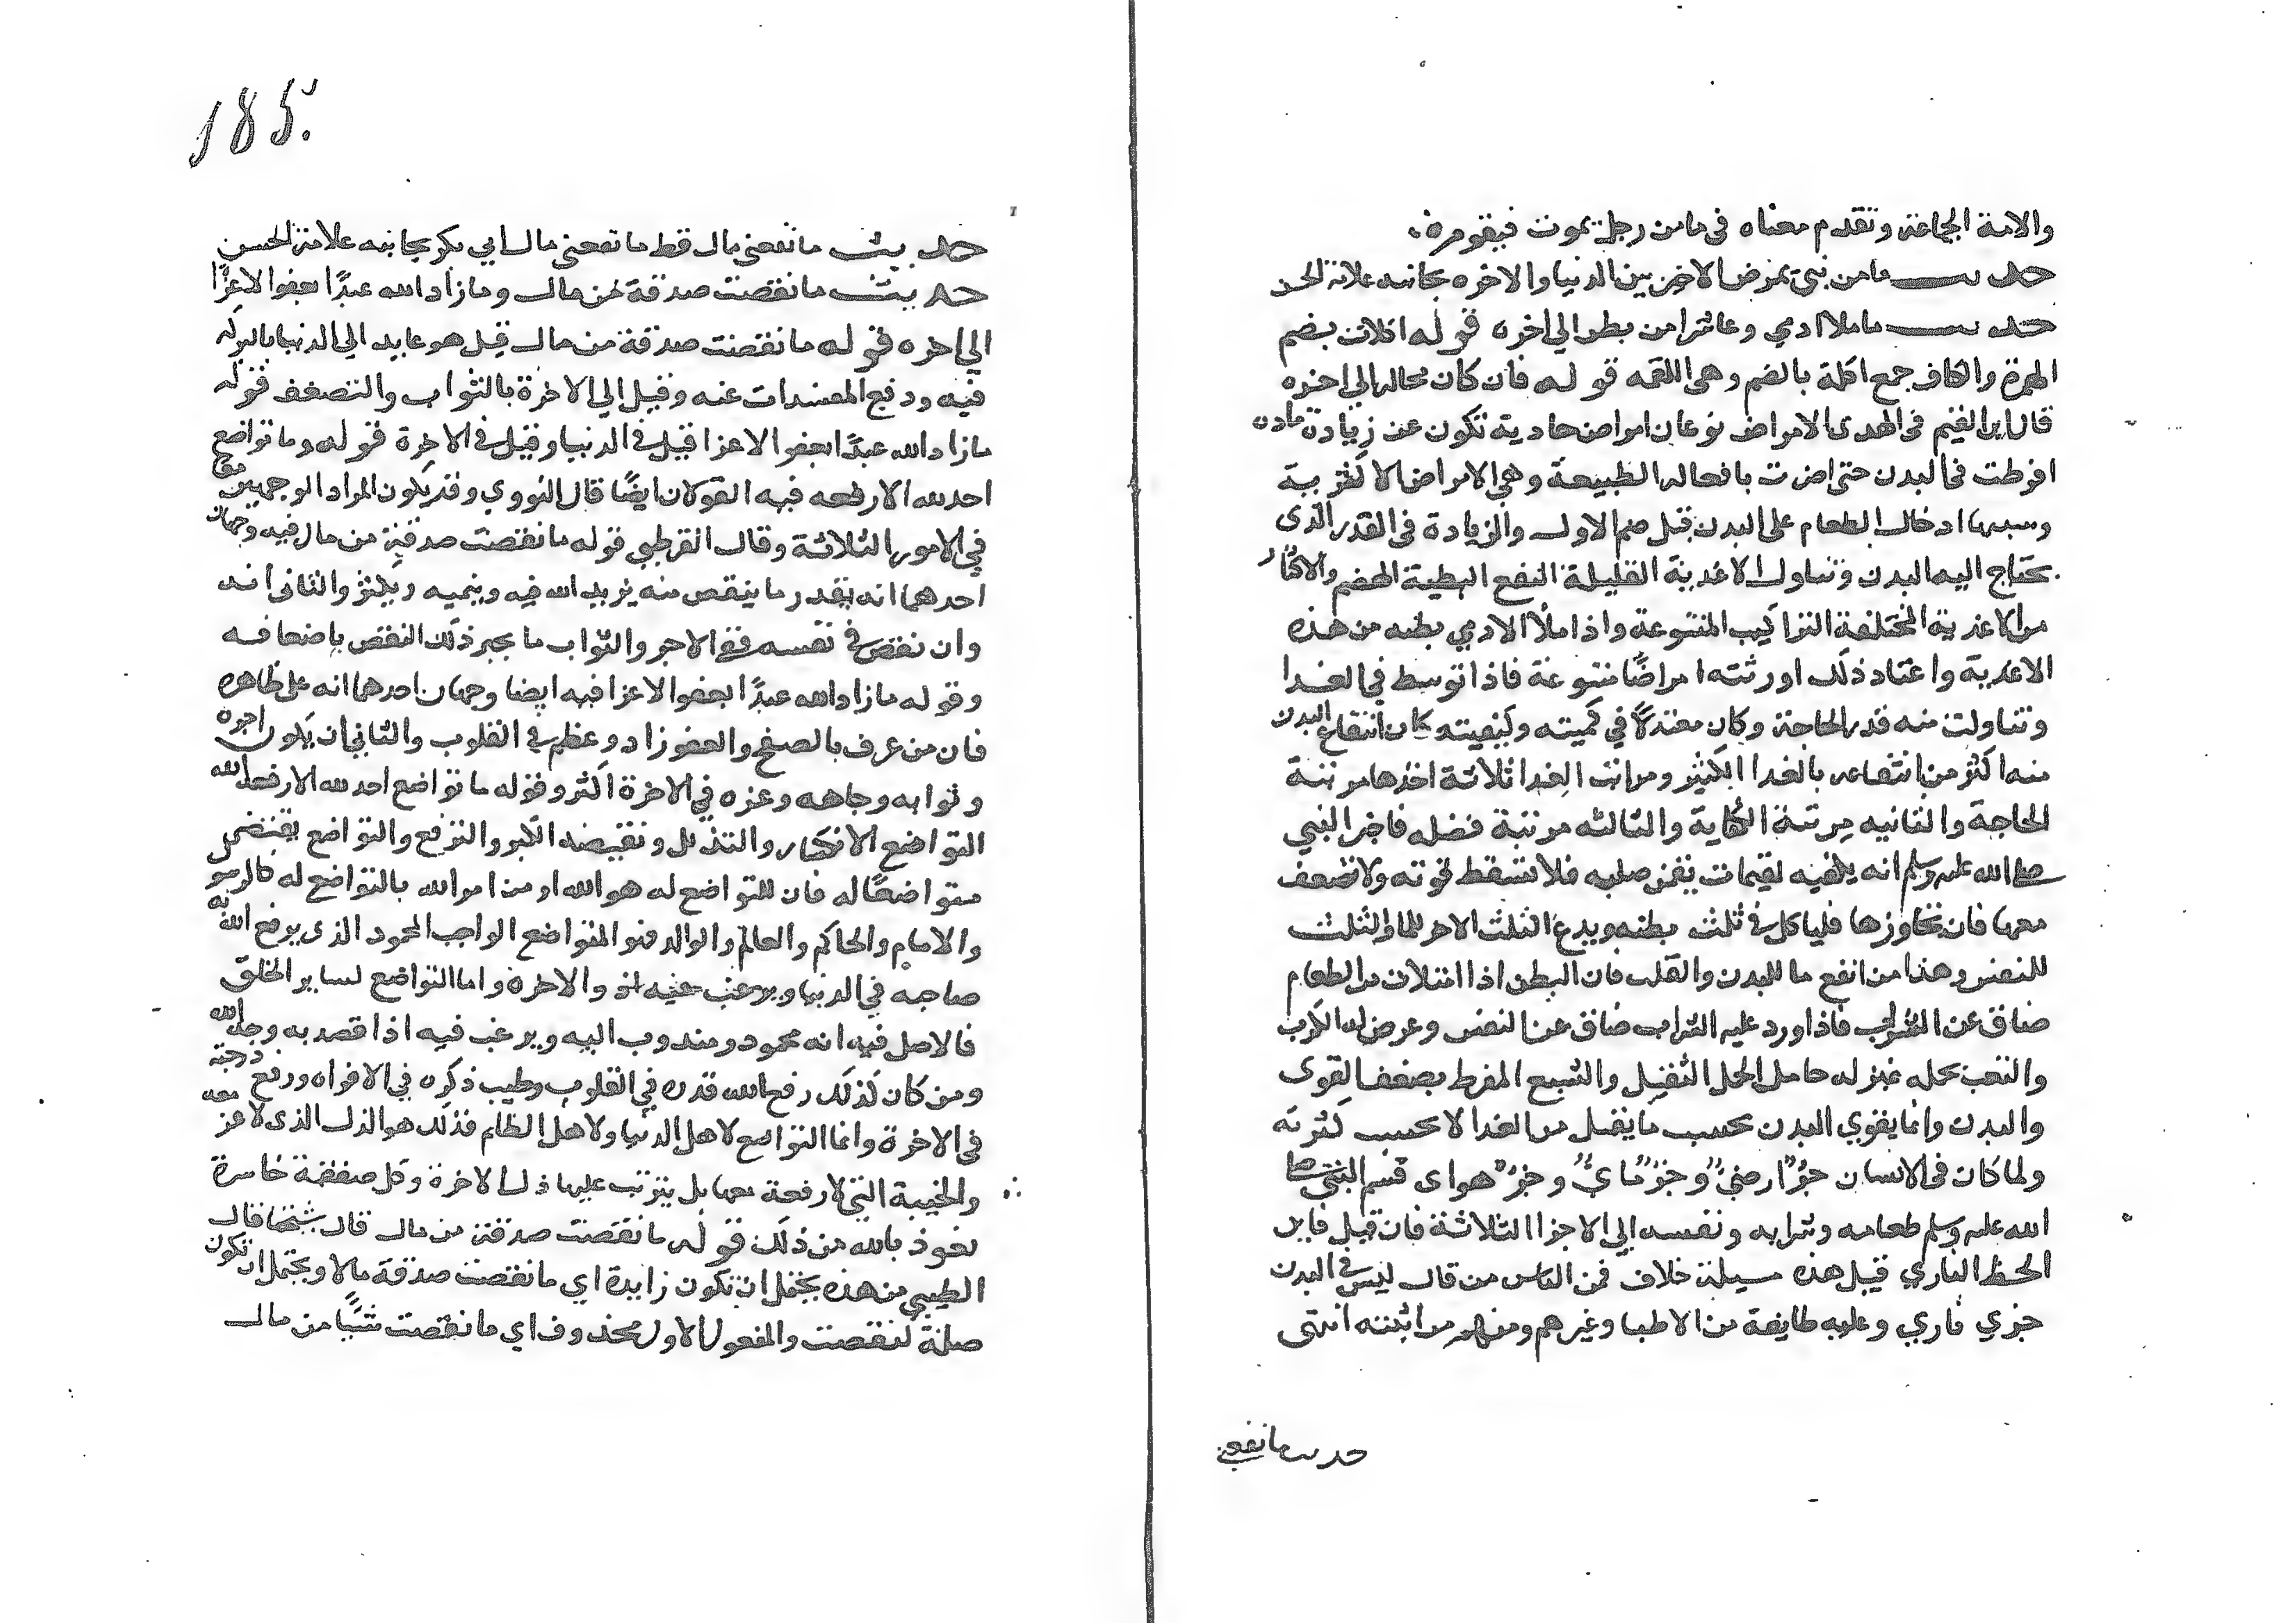 والامة الجماعة وتقدم معناه في ما من رجل يموت فيقوم
حديث ما من نبي يمرض الا خير بين الدنيا والاخره بجانبه علامة الحسن
حديث ما ملا ادمي وعا شرا من بطن الي اخره قوله اكلات بضم
الهمزة والكاف جمع اكلة بالضم وهي اللقمه قوله فان كان محاله الي اخره
قال ابن القيم في الهدى الامراض نوعان امراض مادية تكون عن زيادة مادة
افرطت في البدن حتى اضرت بافعاله الطبيعة وهي الامراض الاكثرية
وسببها ادخال الطعام على البدن قبل هضم الاول والزيادة في القدر الذى
يحتاج اليه البدن وتناول الاغدية القليلة النفع البطية الهضم والاكثار
من الاغدية المختلفة التراكيب المتنوعة واذا ملأ الادمي بطنه من هذه
الاغدية واعتاد ذلك اورثته امراضًا متنوعة فاذا توسط في الغدا
وتناولت منه قدر الحاجة وكان معتدلًا في كميته وكيفيته كان انتفاع البدن
منه اكثر من انتفاعه بالغدا الكثير ومراتب الغدا ثلاثة احدها مرتبة
الحاجة والثانيه مرتبة الكفاية والثالثه مرتبة فضله فاخبر النبي
صلى الله عليه وسلم انه يكفيه لقيمات يقمن صلبه فلا تسقط قوته ولا تضعف
معها فان تجاوزها فلياكل في ثلث بطنه ويدع الثلث الاخر للما والثلث
للنفس وهذا من انفع ما للبدن والقلب فان البطن اذا امتلات من الطعام
ضاق عن الشراب فاذا ورد عليه الشراب ضاق عن النفس وعرض له الكرب
والتعب بحمله بمنزله حامل الحمل الثقيل والشبع المفرط يضعف القوى
والبدن وانما يقوي البدن بحسب ما يقبل من الغدا لا بحسب كثرته
ولما كان في الانسان جزؤ ارضيٌ وجزؤ مايٌ وجزؤ هواى قسم النبي صلى
الله عليه وسلم طعامه وشرابه ونفسه الي الاجزا الثلاثة فان قيل فاين
الحظ الناري قيل هذه مسيلة خلاف فمن الناس من قال ليس في البدن
جزي ناري وعليه طايفة من الاطبا وغيرهم ومنهم من اثبته انتهى
حديث ما نفعني
185.
حديث ما نفعني مال قط ما نفعني مال ابي بكر بجانبه علامة الحسن
حديث ما نقصت صدقة من مال وما زاد الله عبدًا بعفو الا عزًا
الي اخره قوله ما نقصت صدقة من مال قيل هو عايد الي الدنيا بالبركه
فيه ودفع المفسدات عنه وقيل الي الاخرة بالثواب والتضعف قوله
ما زاد الله عبدًا بعفو الا عزا قيل في الدنيا وقيل في الاخرة قوله وما تواضع
احد لله الا رفعه فيه القولان ايضًا قال النووي وقد يكون المراد الوجهين معا
في الامور الثلاثة وقال القرطبي قوله ما نقصت صدقة من مال فيه وجهان
احدهما انه بقدر ما ينقص منه يزيد الله فيه وينميه ويكثر والثاني انه
وان نقص في نفسه ففي الاجر والثواب ما يجبر ذلك النقص باضعافه
وقوله ما زاد الله عبدًا بعفو الا عزا فيه ايضا وجهان احدهما انه على ظاهره
فان من عرف بالصفح والعفو زاد وعظم في القلوب والثاني ان يكون اجره
وثوابه وجاهه وعزه في الاخرة اكثر وقوله ما تواضع احد لله الا رفعه الله
التواضع الانكسار والتذلل ونقيضه الكبر والترفع والتواضع يقتضى
متواضعًا له فان المتواضع له هو الله او من امر الله بالتواضع له كالرسو
والامام والحاكم والعالم والوالد فهو المتواضع الواجب المحمود الذى يرفع الله به
صاحبه في الدنيا والاخرة واما التواضع لساير الخلق
فالاصل فيه انه محمود ومندوب اليه ويرغب فيه اذا قصد به وجه الله
ومن كان كذلك رفع الله قدره في القلوب وطيب ذكره في الافواه ورفع درجته
في الاخرة واما التواضع لاهل الدنيا ولاهل الظلم فذلك هو الذل الذى لا عز معه
والخيبة التي لا رفعة معها بل يترتب عليها ذل الاخرة وكل صفقة خاسرة
نعوذ بالله من ذلك قوله ما نقصت صدقة من مال قال شيخنا قال
الطيبي من هذه يحتمل ان تكون زايدة اي ما نقصت صدقة مالا ويحتمل ان تكون
صلة لنقصت والمفعول الاول محذوف اي ما نقصت شيًا من مال